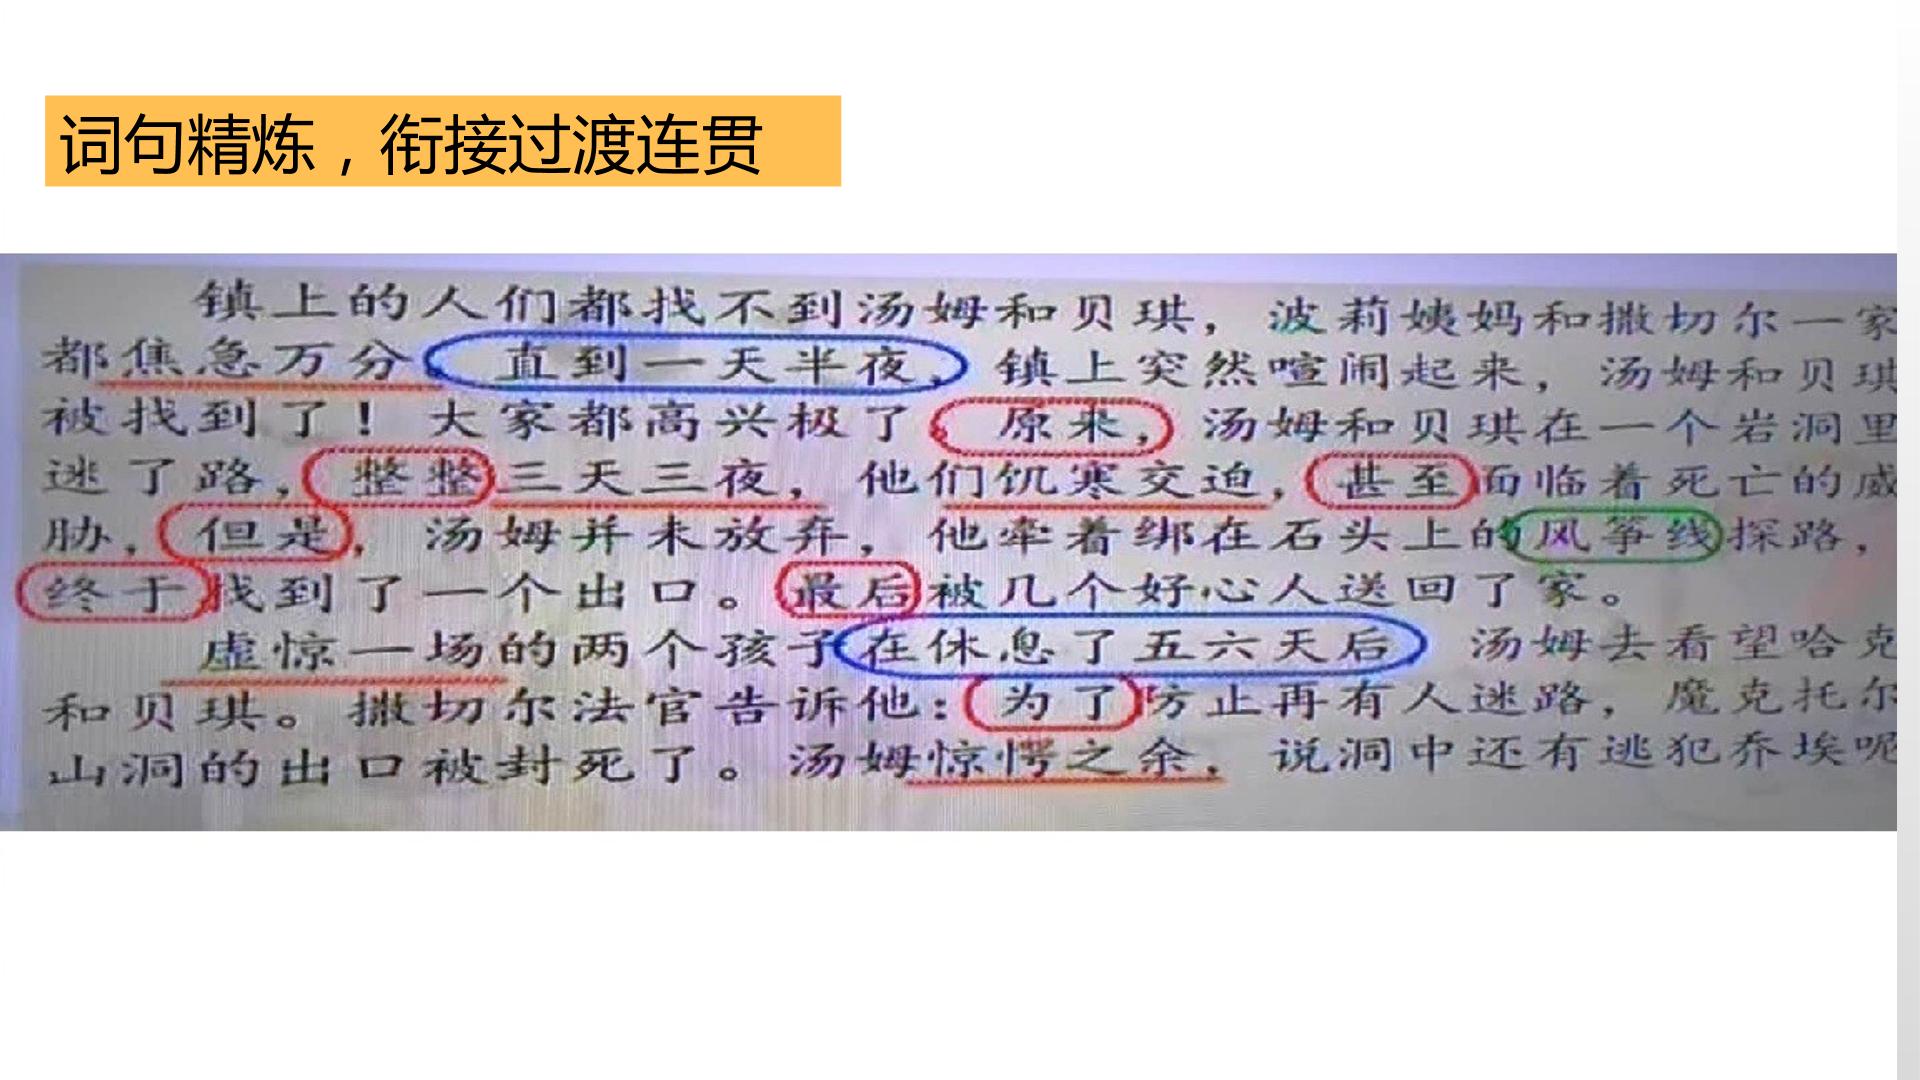 词句精炼，衔接过渡连贯
镇上的人们都找不到汤姆和贝琪，波莉姨妈和撒切尔一家
都焦急万分。直到一天半夜，镇上突然喧闹起来，汤姆和贝琪
被找到了！大家都高兴极了。原来，汤姆和贝琪在一个岩洞里
迷了路，整整三天三夜，他们饥寒交迫，甚至面临着死亡的威
胁，但是，汤姆并未放弃，他牵着绑在石头上的风筝线探路，
终于找到了一个出口。最后被几个好心人送回了家。
虚惊一场的两个孩子在休息了五六天后，汤姆去看望哈克
和贝琪。撒切尔法官告诉他：为了防止再有人迷路，魔克托尔
山洞的出口被封死了。汤姆惊愕之余，说洞中还有逃犯乔埃呢